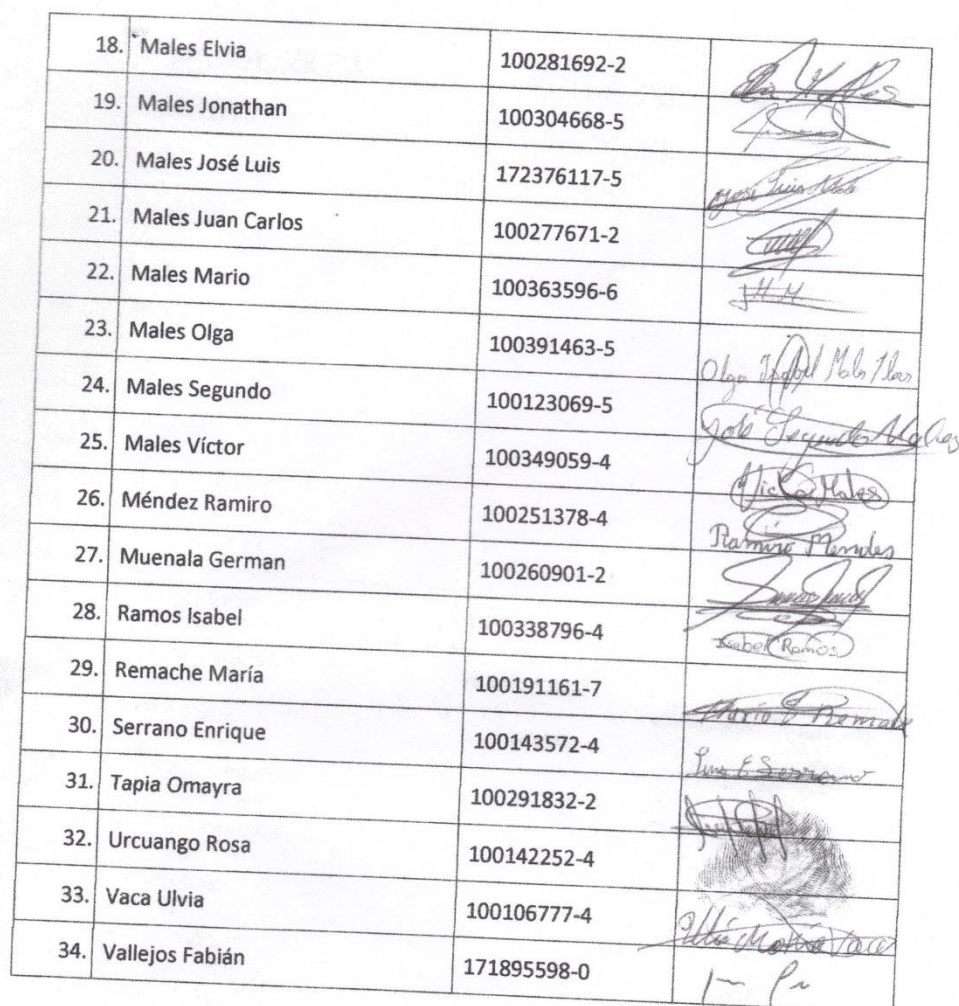 18. Males Elvia 100281692-2
19. Males Jonathan 100304668-5
20. Males José Luis 172376117-5 José Luis Males
21. Males Juan Carlos 100277671-2
22. Males Mario 100363596-6
23. Males Olga 100391463-5 Olga Isabel Males
24. Males Segundo 100123069-5 José Segundo Males
25. Males Víctor 100349059-4 Victor Males
26. Méndez Ramiro 100251378-4 Ramiro Mendes
27. Muenala German 100260901-2
28. Ramos Isabel 100338796-4 Isabel Ramos
29. Remache María 100191161-7 Remache
30. Serrano Enrique 100143572-4 Luis E Serrano
31. Tapia Omayra 100291832-2
32. Urcuango Rosa 100142252-4
33. Vaca Ulvia 100106777-4 María Vaca
34. Vallejos Fabián 171895598-0